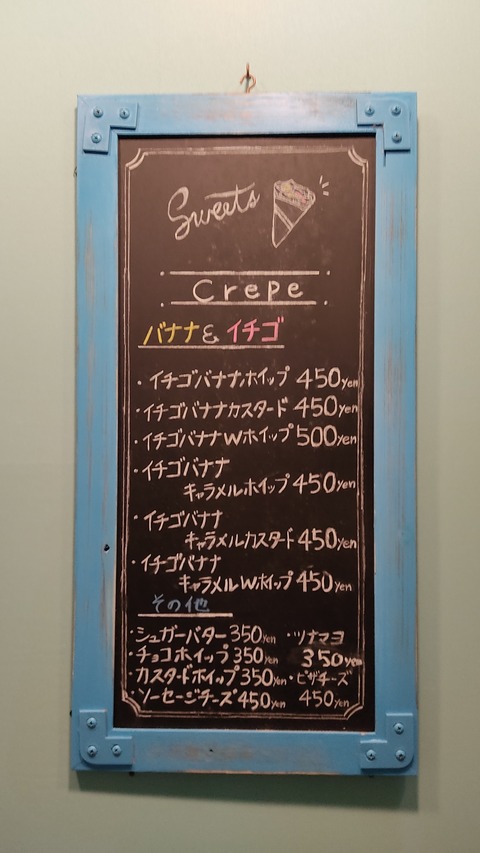 Sweets
Crepe
バナナ & イチゴ
・イチゴバナナホイップ 450yen
・イチゴバナナカスタード 450yen
・イチゴバナナWホイップ 500yen
・イチゴバナナ
キャラメルホイップ 450yen
・イチゴバナナ
キャラメルカスタード 450yen
・イチゴバナナ
キャラメルWホイップ 450yen
その他
・シュガーバター 350yen ・ツナマヨ
・チョコホイップ 350yen 350yen
・カスタードホイップ 350yen ・ピザチーズ
・ソーセージチーズ 450yen 450yen